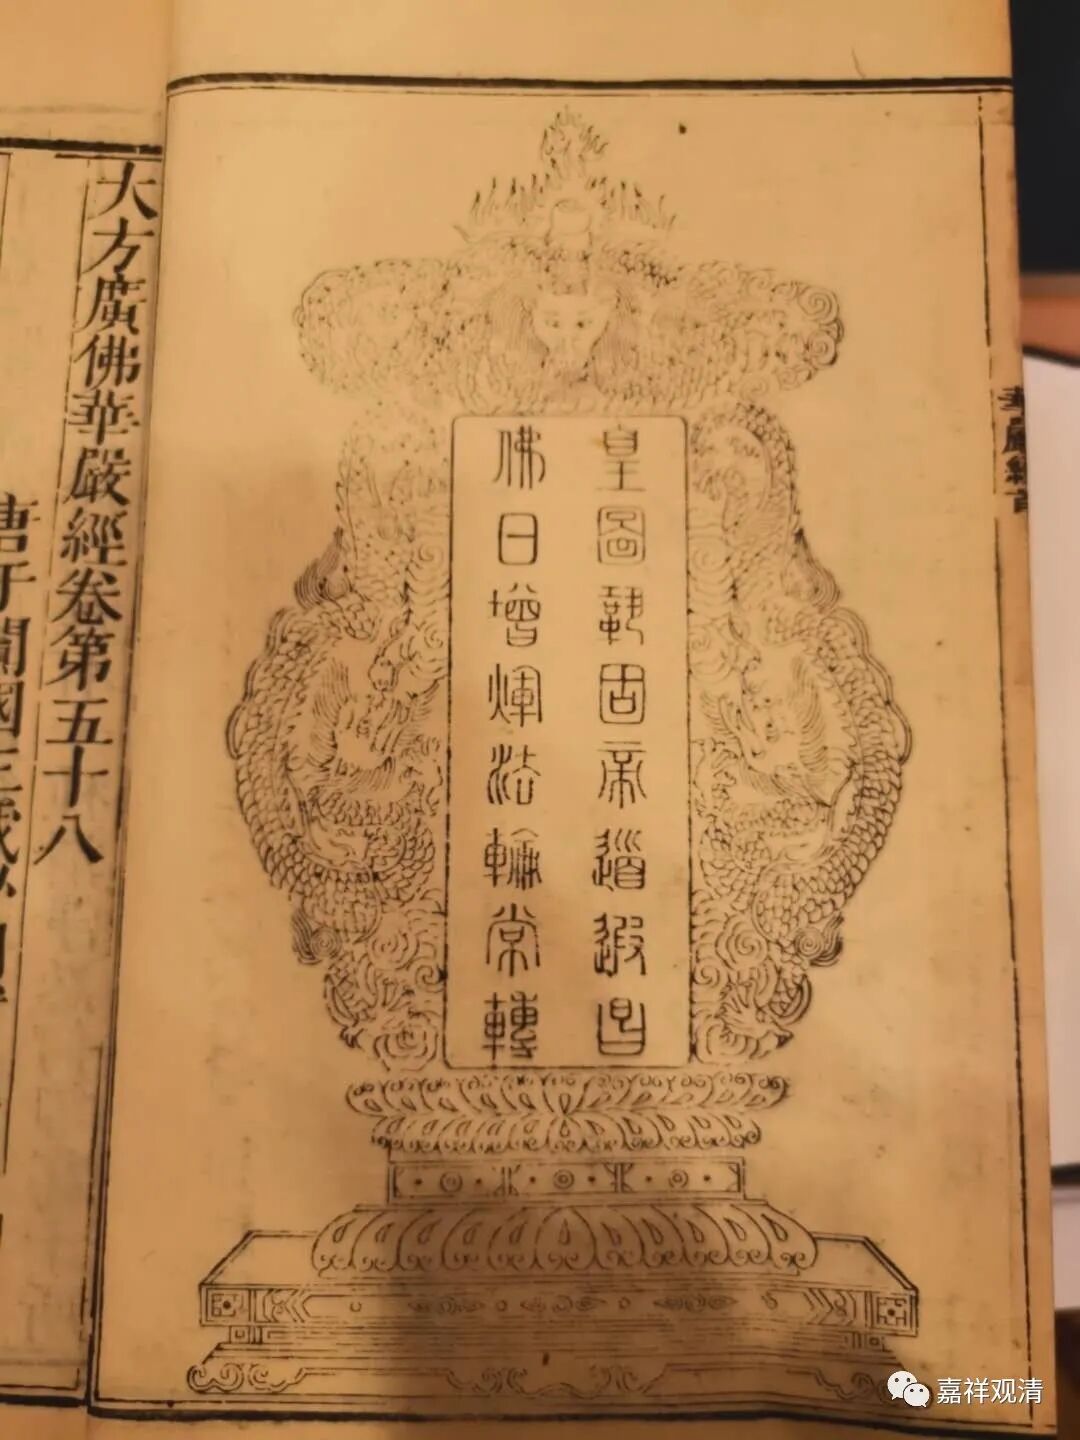 皇圖鞏固帝道遐昌
佛日增煇法輪常轉
華嚴經首
大方廣佛華嚴經卷第五十八
唐于闐國三藏
嘉祥观清